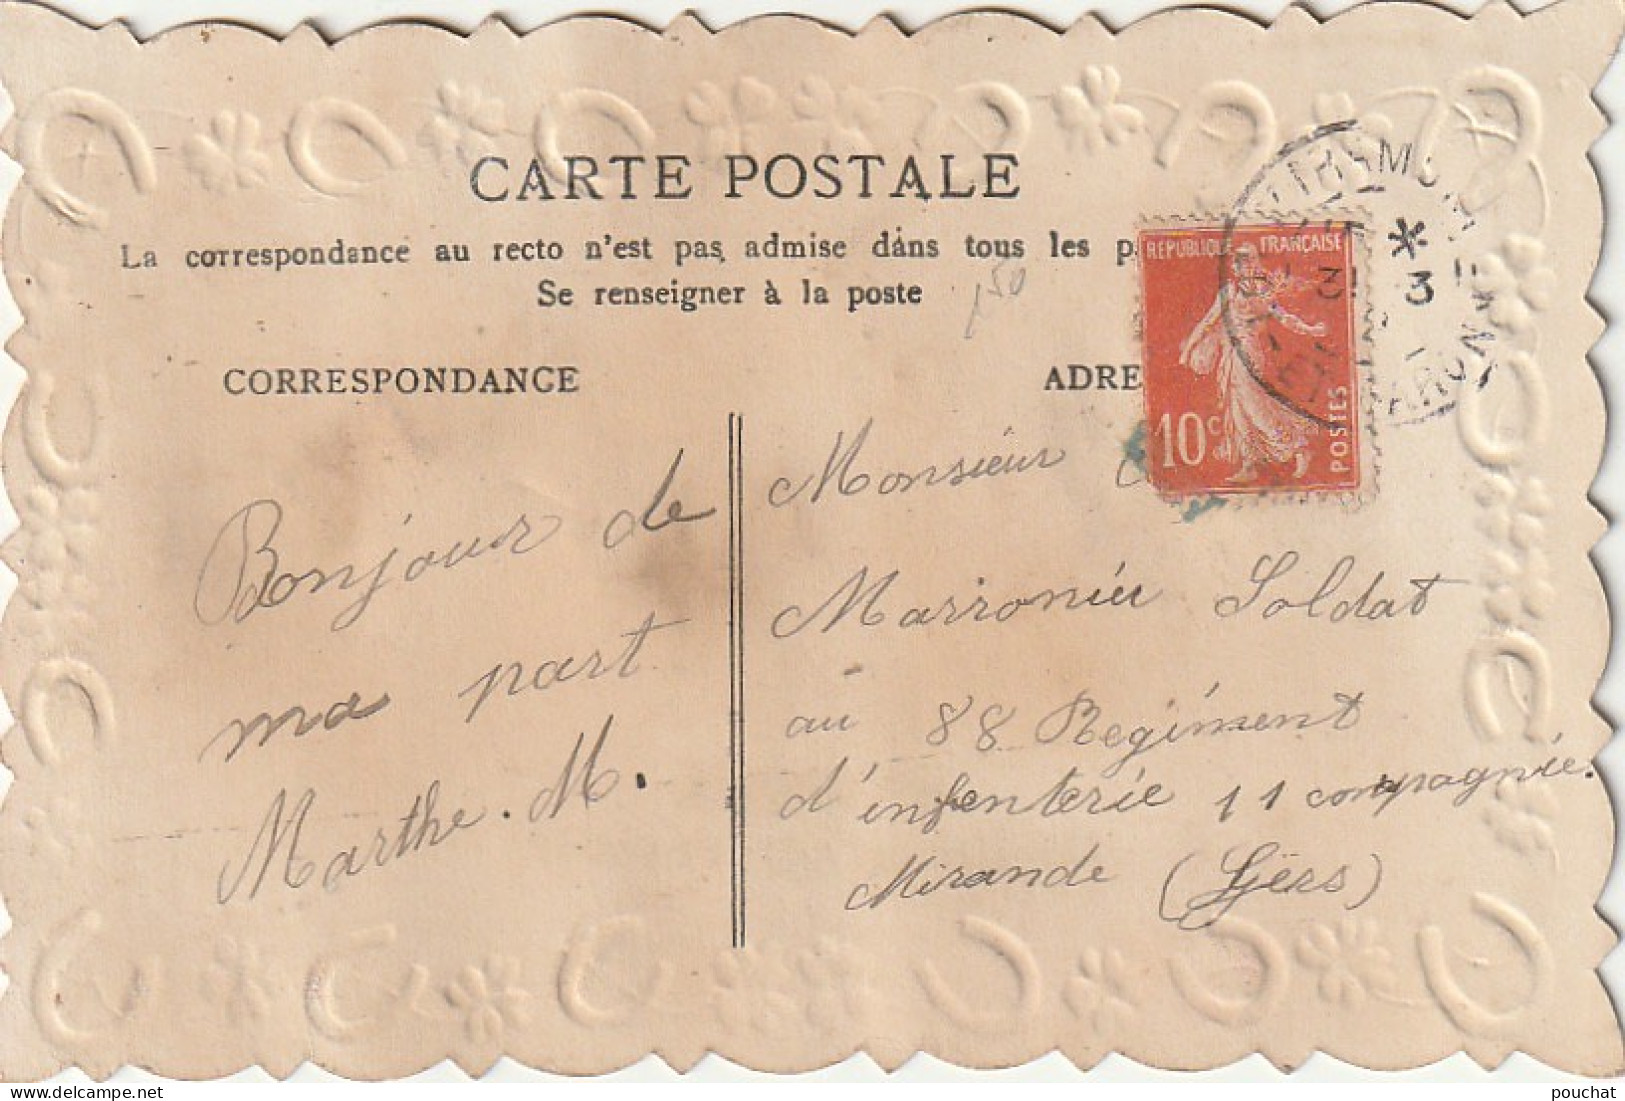 CARTE POSTALE
La correspondance au recto n'est pas admise dans tous les
Se renseigner à la poste
150
CORRESPONDANCE
ADRE
REPUBLIQUE FRANÇAISE
10c
POSTES
3
Bonjour de
ma part
Marthe. M.
Monsieur
Marronier Soldat
au 88 Regiment
d'infenterie 11 compagnie.
Mirande (Gers)
delcampe.net
pouchat